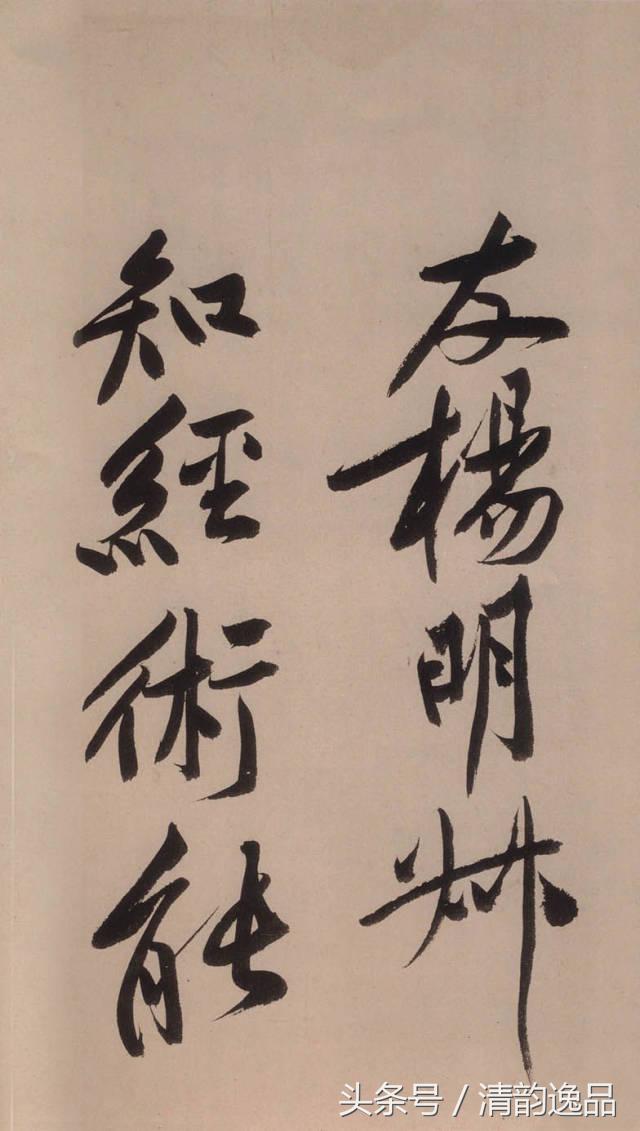 友楊明叔
知經術能
头条号 / 清韵逸品